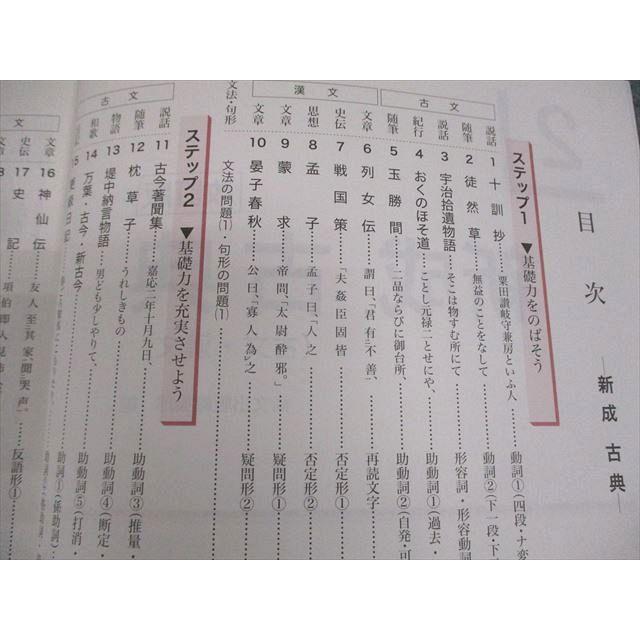 目次
―新成 古典―
ステップ1 ▼基礎力をのばそう
古文
説話 1 十訓抄 粟田讃岐守兼房といふ人 動詞①(四段・ナ変
随筆 2 徒然草 無益のことをなして 動詞②(下一段・下
説話 3 宇治拾遺物語 そこは物すむ所にて 形容詞・形容動詞
紀行 4 おくのほそ道 ことし元禄二とせにや、 助動詞①(過去・
随筆 5 玉勝間 二品ならびに御台所、 助動詞②(自発・可
漢文
文章 6 列女伝 謂曰「君有不善、 再読文字
史伝 7 戦国策 「夫姦臣固皆 否定形①
思想 8 孟子 孟子曰、「人之 否定形②
文章 9 蒙求 帝問、「太尉酔邪。」 疑問形①
文章 10 晏子春秋 公曰、「寡人為之 疑問形②
文法・句形 文法の問題⑴・句形の問題⑴
ステップ2 ▼基礎力を充実させよう
古文
説話 11 古今著聞集 嘉応二年十月九日、 助動詞③(推量・
随筆 12 枕草子 うれしきもの 助動詞④(断定・
物語 13 堤中納言物語 男ども少しやりて、 助動詞⑤(打消・
和歌 14 万葉・古今・新古今
15
文章 16 神仙伝 友人至其家、聞哭声、 反語形①
史伝 17 史記 項伯即入見沛公